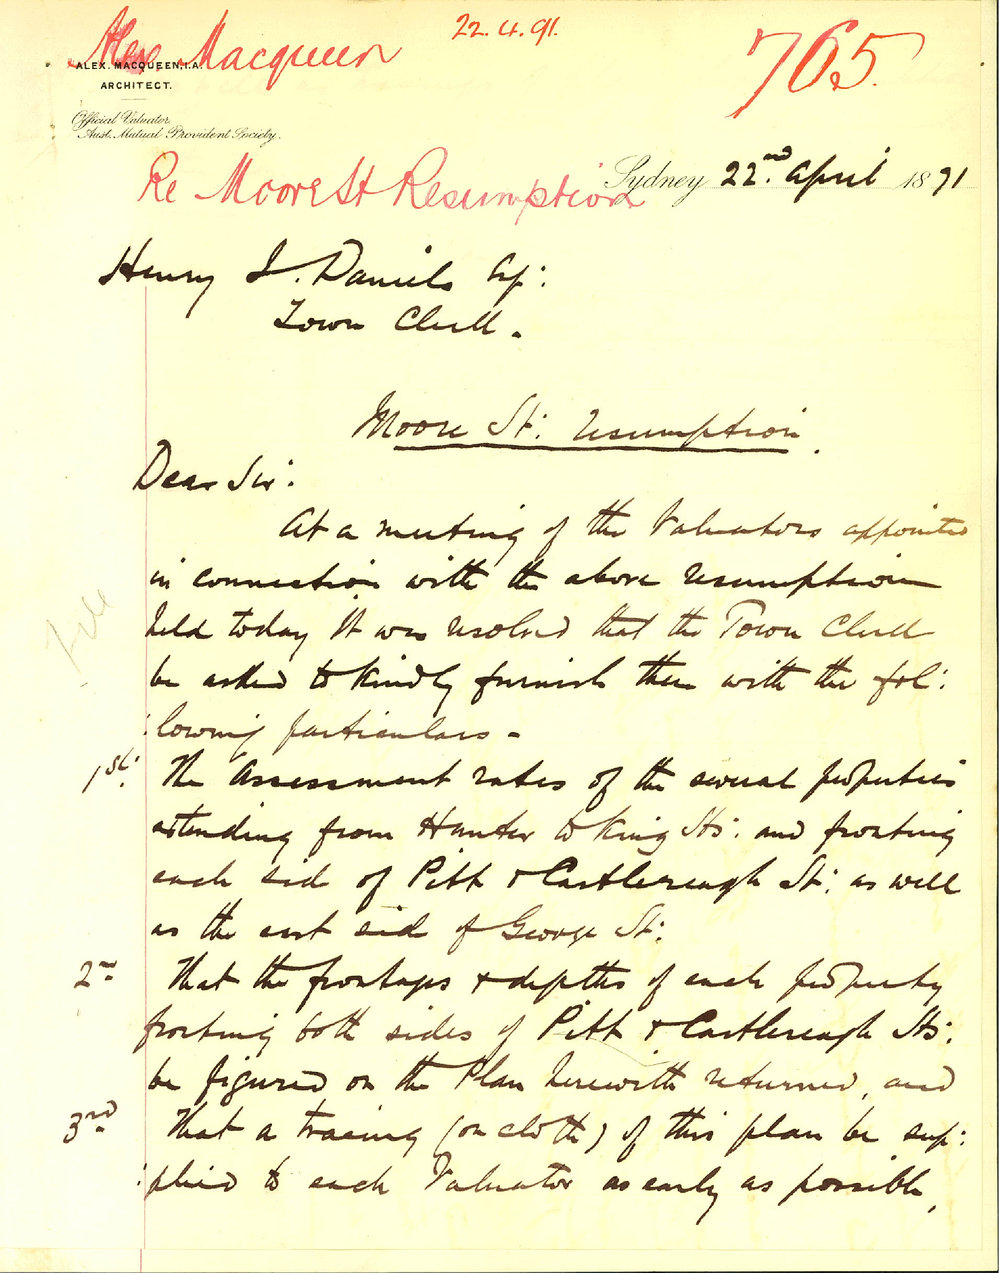 Alex. Macqueen
22.4.91.
765.
ALEX. MACQUEEN, I.A.
ARCHITECT.
Official Valuator,
Aust. Mutual Provident Society.
Re Moore St Resumption
Sydney 22nd. April 1891
Henry J. Daniels Esq:
Town Clerk.
Moore St: resumption.
Dear Sir:
At a meeting of the Valuators appointed
in connection with the above resumption
held today It was resolved that the Town Clerk
be asked to kindly furnish them with the fol:
:lowing particulars -
1st. The Assessment rates of the several properties
extending from Hunter to King Sts: and fronting
each side of Pitt & Castlereagh St: as well
as the east side of George St:
2nd That the frontages & depths of each property
fronting both sides of Pitt & Castlereagh Sts:
be figured on the Plan herewith returned, and
3rd. That a tracing (on cloth) of this plan be sup:
:plied to each Valuator as early as possible,